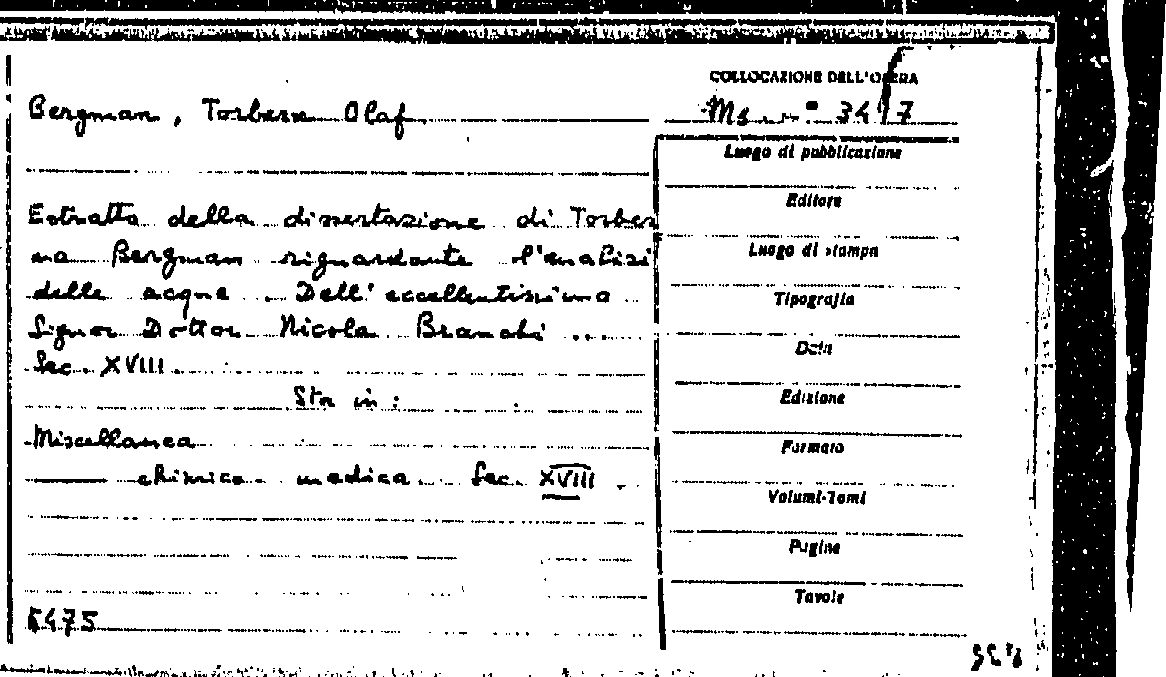 COLLOCAZIONE DELL'OPERA
Bergman, Torbern Olaf
Ms. n° 3417
Estratto della dissertazione di Torber
na Bergman riguardante l'analisi
delle acque. Dell'eccellentissimo
Signor Dottor Nicola Branchi ...
Sec. XVIII.
Sta in:
Miscellanea
chimico-medica. Sec. XVIII.
5475
Luogo di pubblicazione
Editore
Luogo di stampa
Tipografia
Data
Edizione
Formato
Volumi-Tomi
Pagine
Tavole